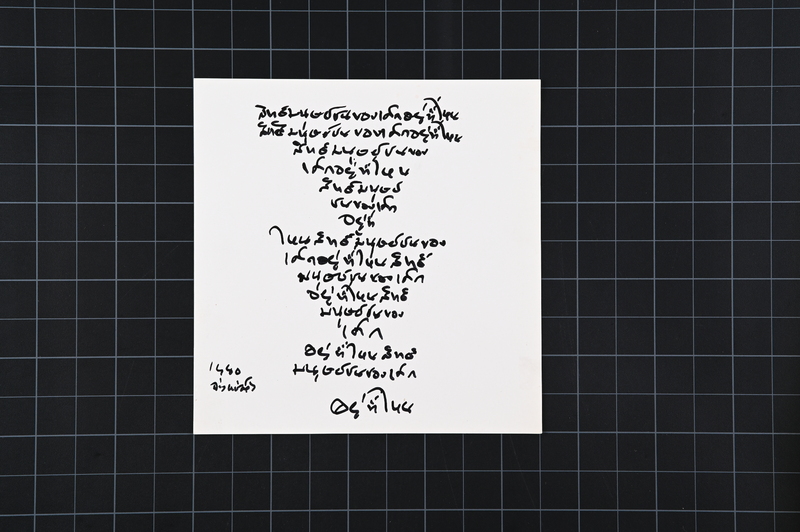 สิทธิมนุษยชนของเด็กอยู่ที่ไหน
สิทธิมนุษยชนของเด็กอยู่ที่ไหน
สิทธิมนุษยชนของ
เด็กอยู่ที่ไหน
สิทธิมนุษย์
ชนของเด็ก
อยู่ที่
ไหนสิทธิมนุษยชนของ
เด็กอยู่ที่ไหนสิทธิ
มนุษยชนของเด็ก
อยู่ที่ไหนสิทธิ
มนุษยชนของ
เด็ก
อยู่ที่ไหนสิทธิ
มนุษยชนของเด็ก
อยู่ที่ไหน